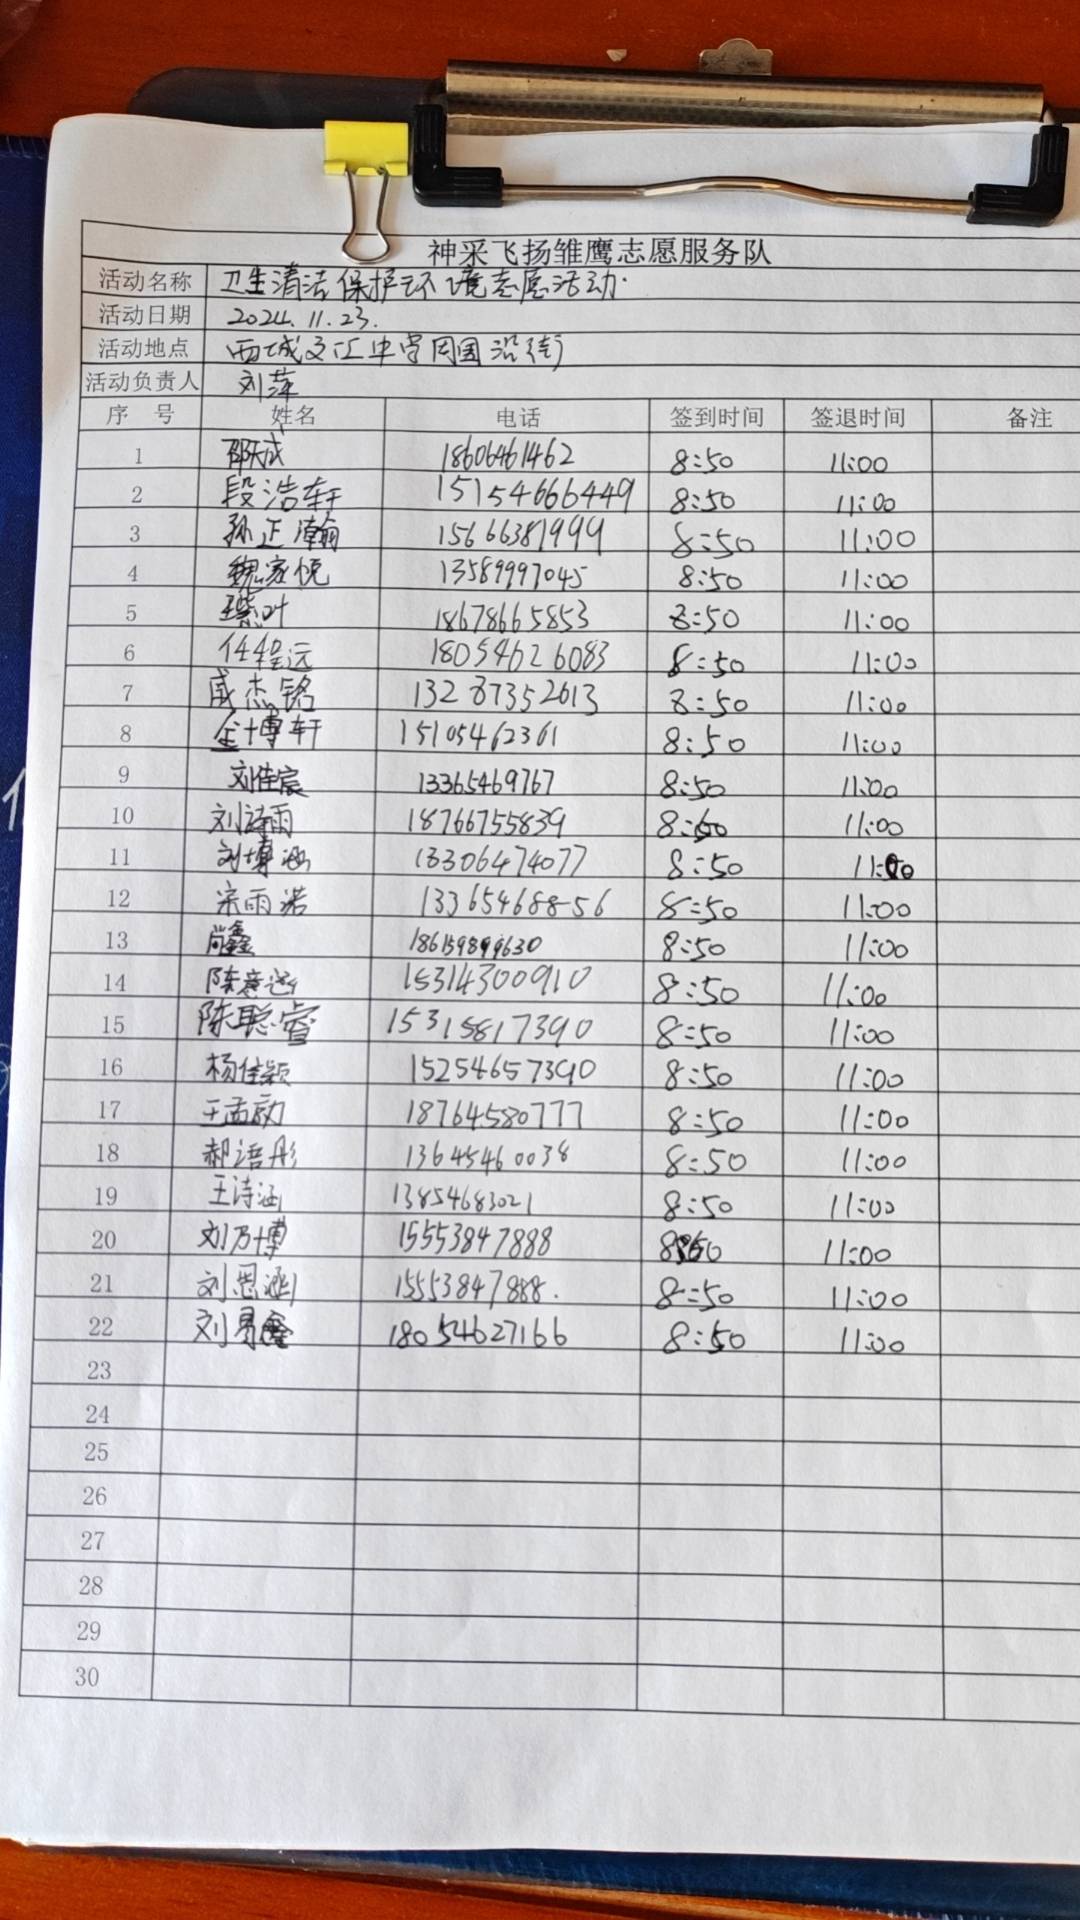 神采飞扬雏鹰志愿服务队
活动名称 卫生清洁保护环境志愿活动.
活动日期 2024.11.23.
活动地点 西城文汇中学周围沿街
活动负责人 刘萍
序号 姓名 电话 签到时间 签退时间 备注
1 18606461462 8:50 11:00
2 段浩轩 15154666449 8:50 11:00
3 孙正瀚 15666381999 8:50 11:00
4 魏家悦 13589997045 8:50 11:00
5 18678665853 8:50 11:00
6 任程远 18054626083 8:50 11:00
7 戚杰铭 13287352613 8:50 11:00
8 金博轩 15105462361 8:50 11:00
9 刘佳宸 13365469767 8:50 11:00
10 刘诗雨 18766755839 8:50 11:00
11 刘博涵 13306474077 8:50 11:00
12 宋雨诺 13365468856 8:50 11:00
13 尚鑫 8:50 11:00
14 陈意涵 15314300910 8:50 11:00
15 陈聪睿 15315817390 8:50 11:00
16 杨佳颖 15254657390 8:50 11:00
17 王孟勋 18764580777 8:50 11:00
18 郝语彤 13645460038 8:50 11:00
19 王诗涵 13854683021 8:50 11:00
20 刘乃博 15553847888 11:00
21 刘恩涵 15553847888. 8:50 11:00
22 刘易鑫 18054627166 8:50 11:00
23
24
25
26
27
28
29
30